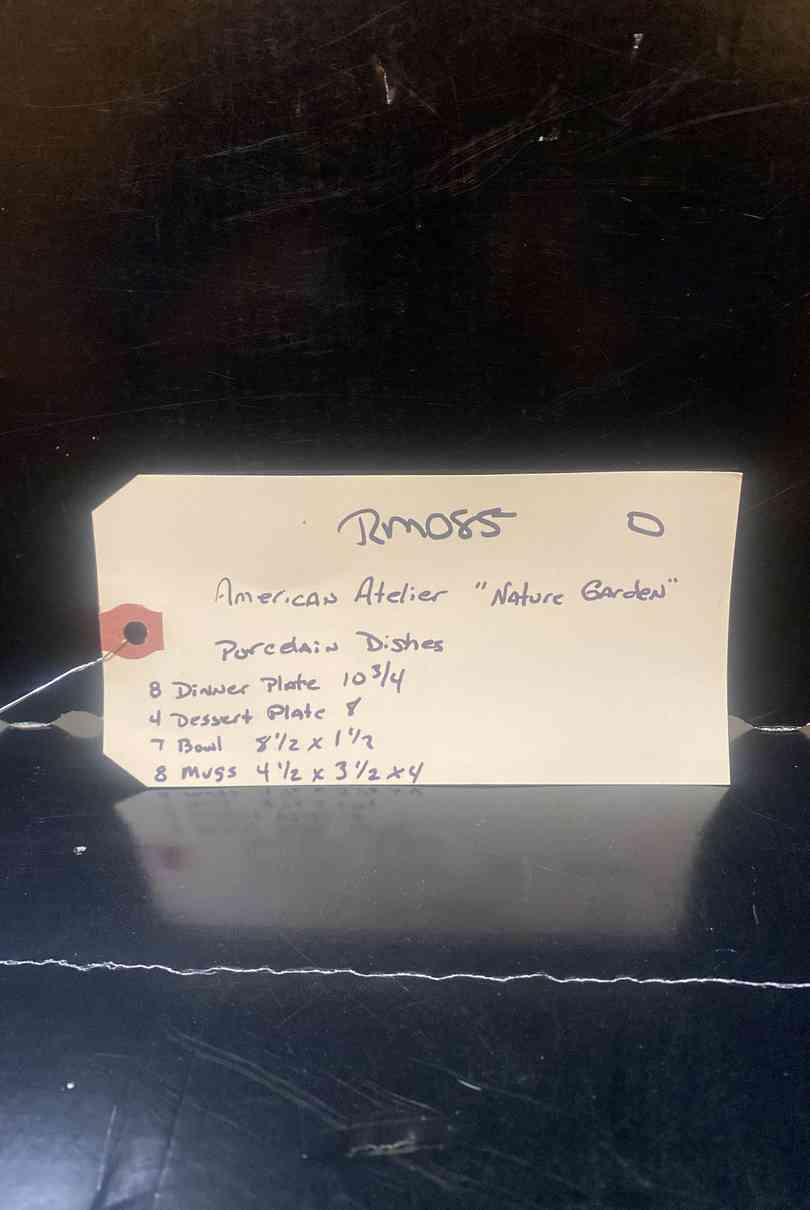 RM085 0
American Atelier "Nature Garden"
Porcelain Dishes
8 Dinner Plate 10 3/4
4 Dessert Plate 8
7 Bowl 8 1/2 x 1 1/2
8 Mugs 4 1/2 x 3 1/2 x 4